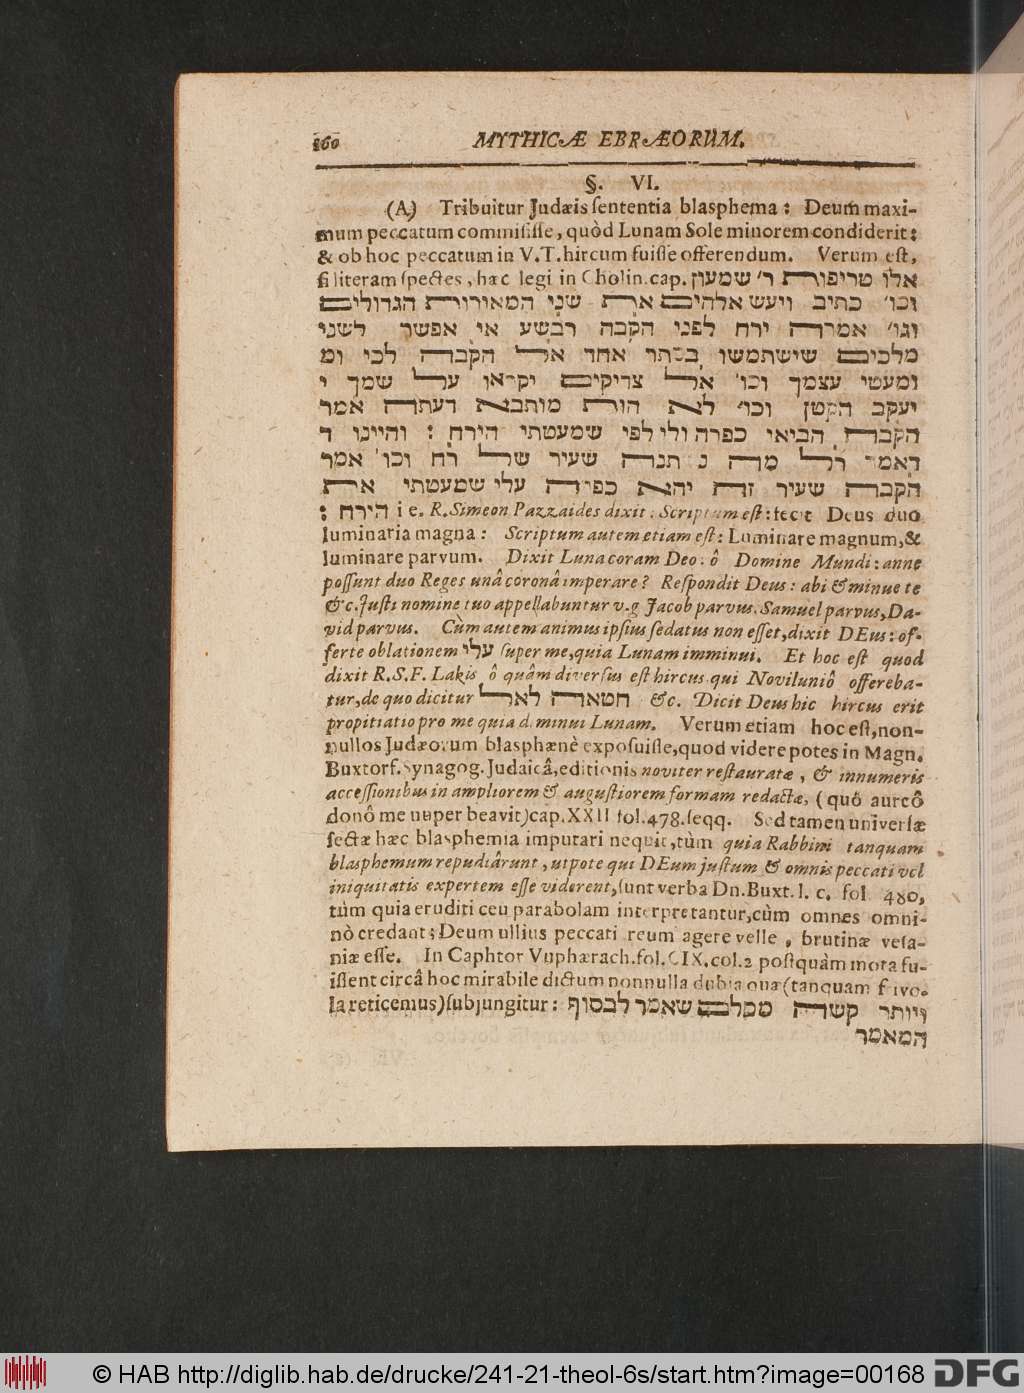 160 MYTHICÆ EBRÆORUM.
§. VI.
(A) Tribuitur Judæis sententia blasphema: Deum maxi-
mum peccatum commisisse, quòd Lunam Sole minorem condiderit:
& ob hoc peccatum in V.T. hircum fuisse offerendum. Verum est,
si literam spectes, hæc legi in Cholin. cap. אלו טריפורת ר׳ שמעון
וכו׳ כתיב ויעש אלהים את שני המאורות הגדולים
וגו׳ אמרה ירח לפני הקבה רבשע אי אפשר לשני
מלכים שישתמשו בכתר אחד אל הקבה לכי ומ
ומעטי עצמך וכו׳ אל צדיקים יקראו על שמך י
יעקב הקטן וכו׳ לא הות מותבא דעתה אמר
הקבה הביאי כפרה ולי לפי שמעטתי הירח: והיינו ד
דאמר רל מה נ תנה שעיר של רח וכו׳ אמר
הקבה שעיר זה יהא כפרה עלי שמעטתי את
הירח: i e. R. Simeon Pazzaides dixit: Scriptum est: fecit Deus duo
luminaria magna: Scriptum autem etiam est: Luminare magnum, &
luminare parvum. Dixit Luna coram Deo: ô Domine Mundi: anne
possunt duo Reges unâ coronâ imperare? Respondit Deus: abi & minue te
&c. Justi nomine tuo appellabuntur v.g Jacob parvus. Samuel parvus, Da-
vid parvus. Cùm autem animus ipsius sedatus non esset, dixit DEus: of-
ferte oblationem עלי super me, quia Lunam imminui. Et hoc est quod
dixit R.S.F. Lakis ô quâm diversus est hircus qui Noviluniô offereba-
tur, de quo dicitur חטאה לאל &c. Dicit Deus hic hircus erit
propitiatio pro me quia diminui Lunam. Verum etiam hoc est, non-
nullos Judæorum blasphænè exposuisse, quod videre potes in Magn.
Buxtorf. Synagog. Judaicâ, editionis noviter restauratæ, & innumeris
accessionibus in ampliorem & augustiorem formam redactæ, (quô aureô
donô me nuper beavit) cap. XXII fol. 478. seqq. Sed tamen universæ
sectæ hæc blasphemia imputari nequit, tùm quia Rabbini tanquam
blasphemum repudiârunt, utpote qui DEum justum & omnis peccati vel
iniquitatis expertem esse viderent, sunt verba Dn. Buxt. l. c. fol. 480,
tùm quia eruditi ceu parabolam interpretantur, cùm omnes omni-
nò credant; Deum ullius peccati reum agere velle, brutinæ vesa-
niæ esse. In Caphtor Vupharach. fol. CIX. col. 2 postquàm mota fu-
issent circâ hoc mirabile dictum nonnulla dubia quæ (tanquam frivo-
la reticemus) subjungitur: ויותר קשה מכלם שאמר לבסוף
המאמר
© HAB http://diglib.hab.de/drucke/241-21-theol-6s/start.htm?image=00168 DFG